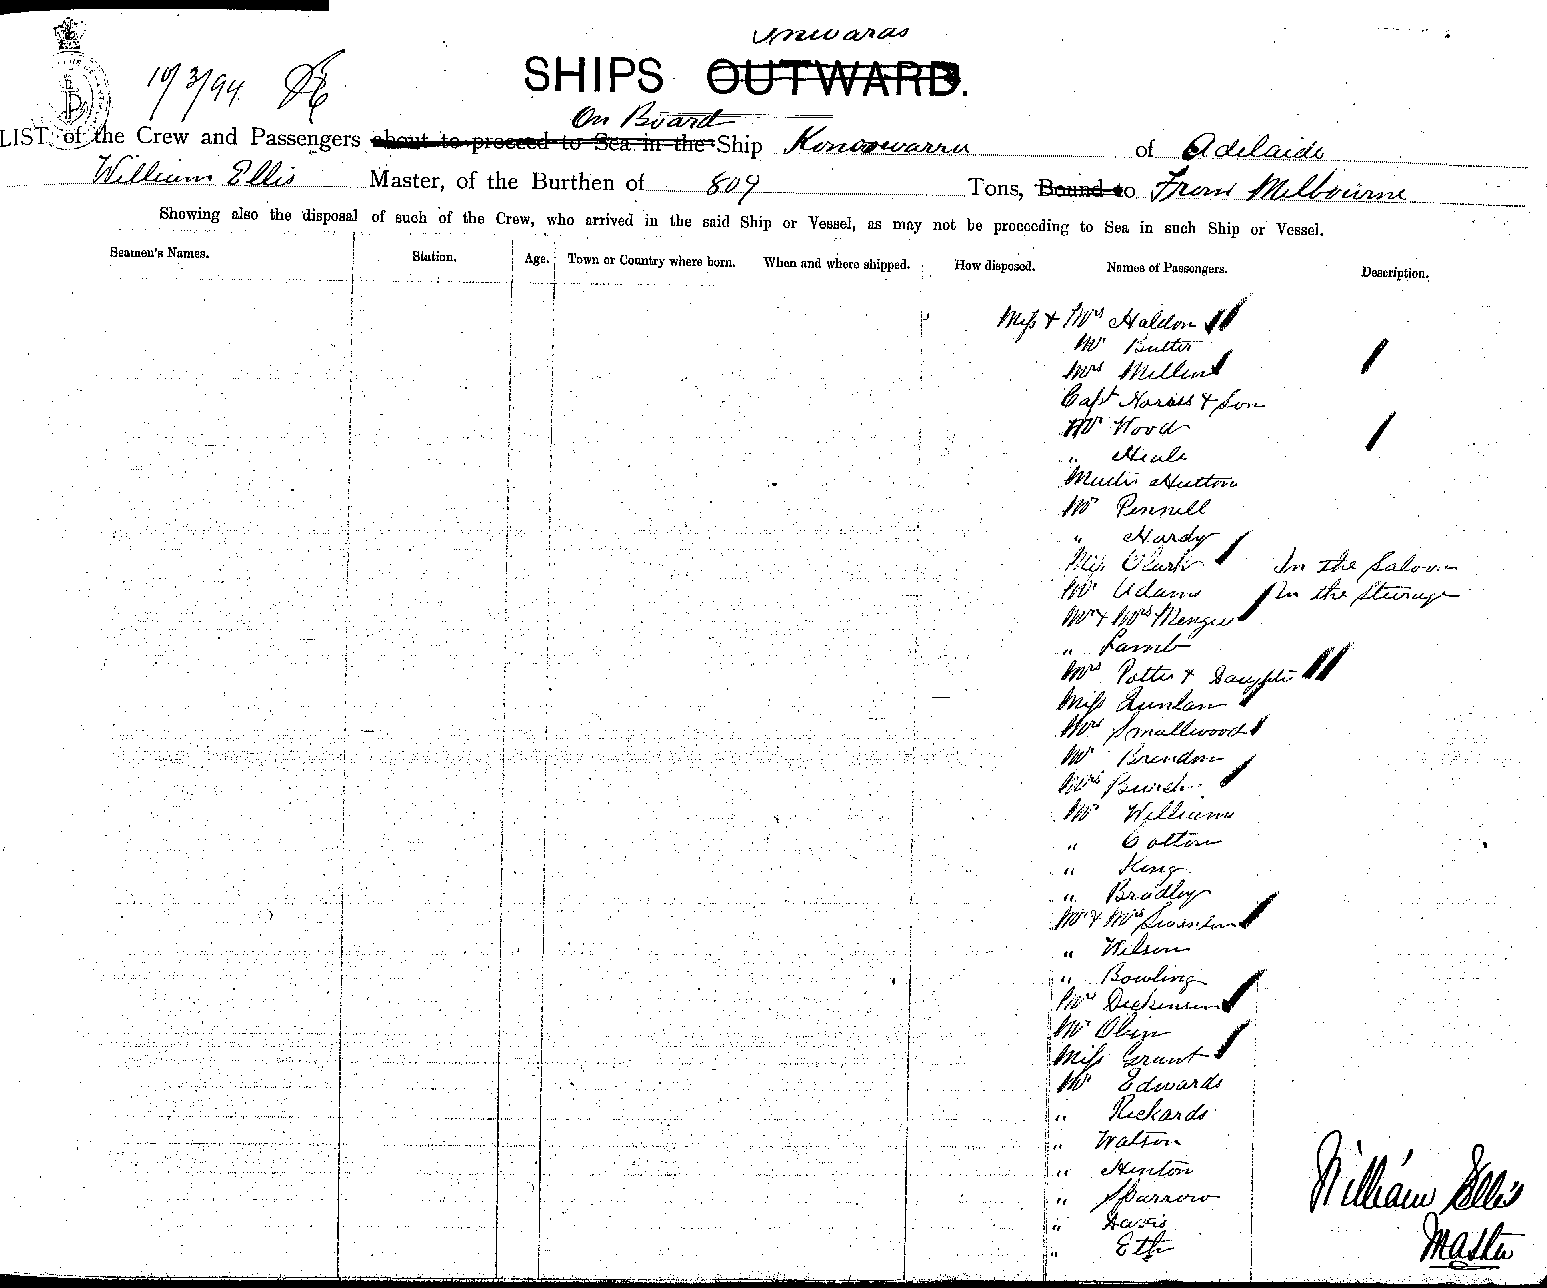 Inwards
10/3/94
SHIPS OUTWARD.
On Board
LIST of the Crew and Passengers about to proceed to Sea in the Ship Konoowarra of Adelaide
William Ellis Master, of the Burthen of 809 Tons, Bound to From Melbourne
Showing also the disposal of such of the Crew, who arrived in the said Ship or Vessel, as may not be proceeding to Sea in such Ship or Vessel.
Seamen's Names. Station. Age. Town or Country where born. When and where shipped. How disposed. Names of Passengers. Description.
Miss & Mrs Haldon
Mr Butler
Mrs
Capt & Son
Mr Wood
"
Hutton
Mr Pennell
" Hardy
Miss Clark In the Saloon
Mr Adams In the Steerage
Mr & Mrs Menzies
" Lamb
Mrs Potter & Daughter
Miss Quinlan
Mrs Smallwood
Mr Brendon
Mrs Burch
Mr Williams
" Colton
" King
" Bradley
Mr & Mrs
" Wilson
" Bowling
Mrs Dickinson
Mr
Miss Grant
Mr Edwards
" Rickards
" Watson
" Hinton
" Sparrow
" Davis
"
William Ellis
Master